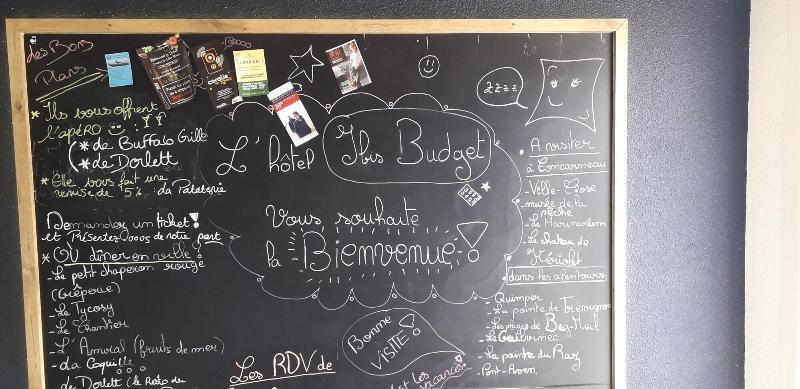 des Bons
Plans
* Ils vous offrent
l'apéRO
(* de Buffalo Grill
* de Dorlett
* Elle vous fait une
remise de 5% : La Pataterie
Demander un ticket !
et Présentez vous de notre part
* OÙ dîner en ville ?
- Le petit chaperon rouge
(Crêperie)
- Le Tycosy
- Le Chantier
- L'Amiral (fruits de mer)
- La Coquille
- de Dorlett (le Resto du
L'hôtel Ibis Budget
Vous souhaite
la Bienvenue !
Bonne
VISITE !
Les RDV de
zzzz
A visiter
à Concarneau
- Ville-Close
- musée de la
pêche
- Le Marinarium
- Le chateau de
Kériolet
dans les alentours
- Quimper
- La pointe de Trévignon
- Les plages de Beg-Meil
- Le Guilvinec
- La pointe du Raz
- Pont-Aven